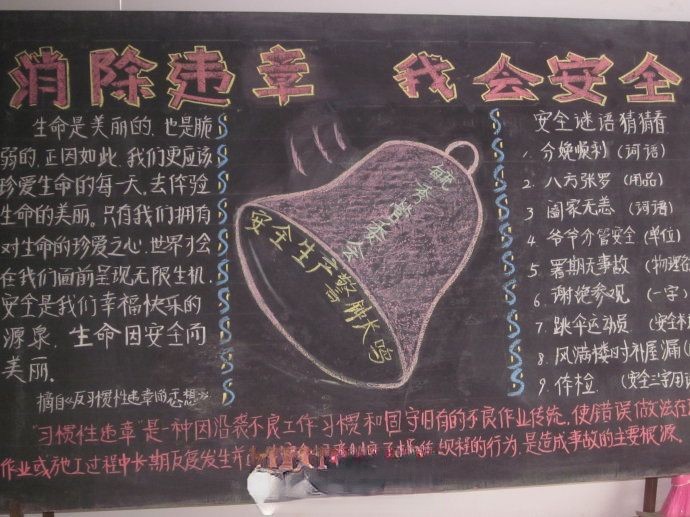 消除违章 我会安全
生命是美丽的,也是脆
弱的,正因如此,我们更应该
珍爱生命的每一天,去体验
生命的美丽。只有我们拥有
对生命的珍爱之心,世界才会
在我们面前呈现无限生机,
安全是我们幸福快乐的
源泉,生命因安全而
美丽。
摘自《反习惯性违章的思想》
安全生产警钟大鸣
安全谜语猜猜看
1. 分娩顺利(词语)
2. 八方张罗(用品)
3 阖家无恙(词语)
4. 爷爷分管安全(单位)
5. 暑期无事故(物理
6. 谢绝参观(一字)
7. 跳伞运动员(安全
8. 风满楼时补屋漏(
9. 体检(安全三字用语
"习惯性违章"是一种因沿袭不良工作习惯和固守旧有的不良作业传统,使错误做法在
作业或施工过程中长期反复发生 规程的行为,是造成事故的主要根源。